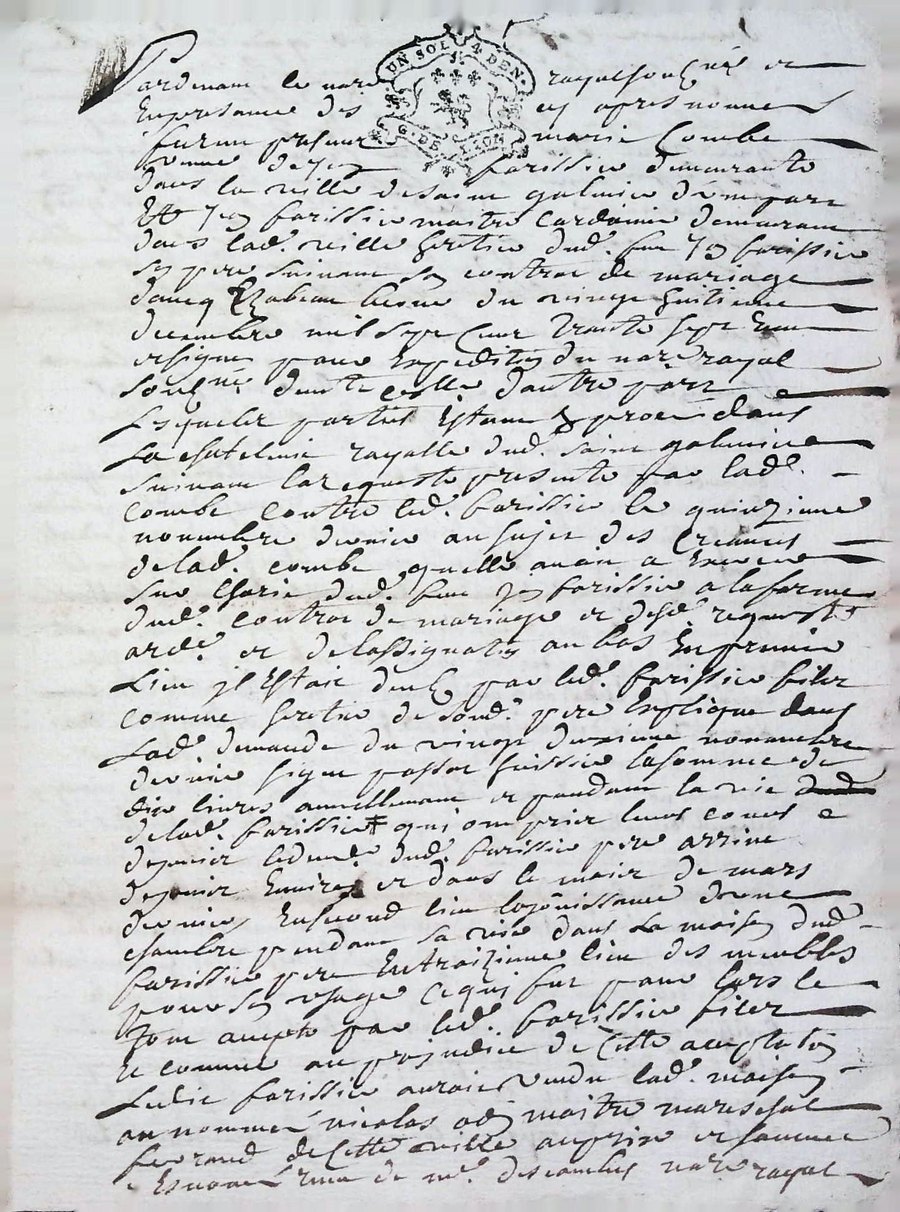 UN SOL 4 DEN.
G. DE LYON
Pardevant le no.re royal soub.né et
En presence des cy apres nommes
furent presents marie Combe
veuve de Jean parissier demeurante
dans la ville de saint galmier d'une part
Et Jean parissier maitre Cardeur demeurant
dans lad. ville heritier dud. feu Jean parissier
son pere suivant son contrat de mariage
davecq Ezabeau du vingt huitieme
decembre mil sept Cent trante sept
et signé pour Expedition du no.re royal
soub.né d'autre part
Lesquelles parties Estant En proces dans
La chatelenie royalle dud. saint galmier
suivant la requeste presentée par lad.
combe contre led. parissier le quinzieme
novembre dernier au sujet des Creances
de lad. combe quelle avoit a Exercer
sur l'hoirie dud. feu Jean parissier a la forme
dud. contrat de mariage et desd. requeste
ord.ce et de lassignation au bas En premier
Lieu il Estoit deub par led. parissier filz
comme heritier de sond. pere Expliqué dans
Lad. demande du vingt deuxieme novembre
dernier signé huissier la somme de
dix livres annuellement et pendant la vie
de lad. parissier qui ont pris leurs cours
depuis le deces dud. parissier pere arrivé
depuis et dans le mois de mars
dernier En second lieu la jouissance d'une
chambre pendant sa vie dans La maison dud.
parissier pere En troizieme lieu des meubles
pour son usage Ce qui fut pour Lors le
tout accepté par led. parissier filz
Et comme au prejudice de Cette acceptation
Ledit parissier auroit vendu lad. maison
au nommé nicolas maitre mareschal
ferrand de Cette ville au prix et somme
Enoncé de m.e descombes no.re royal